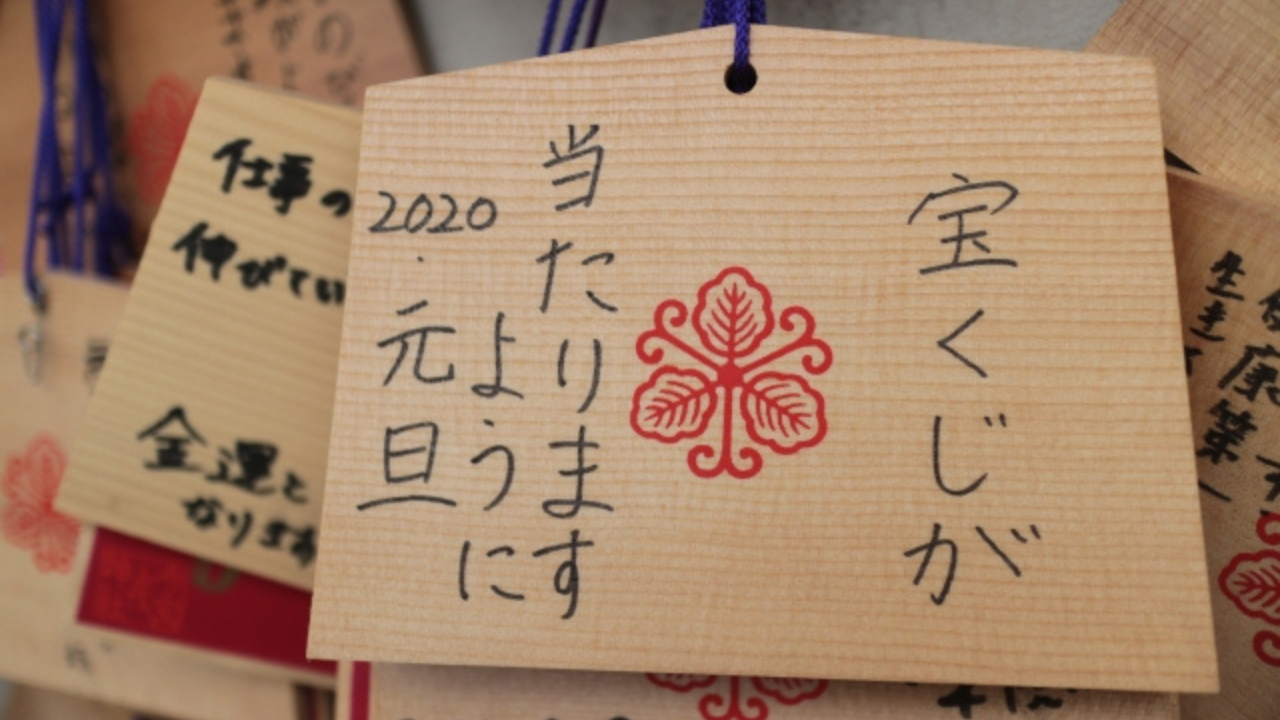 宝くじが
当たります
ように
2020.元旦
仕事の
伸びてい
金運と
なります